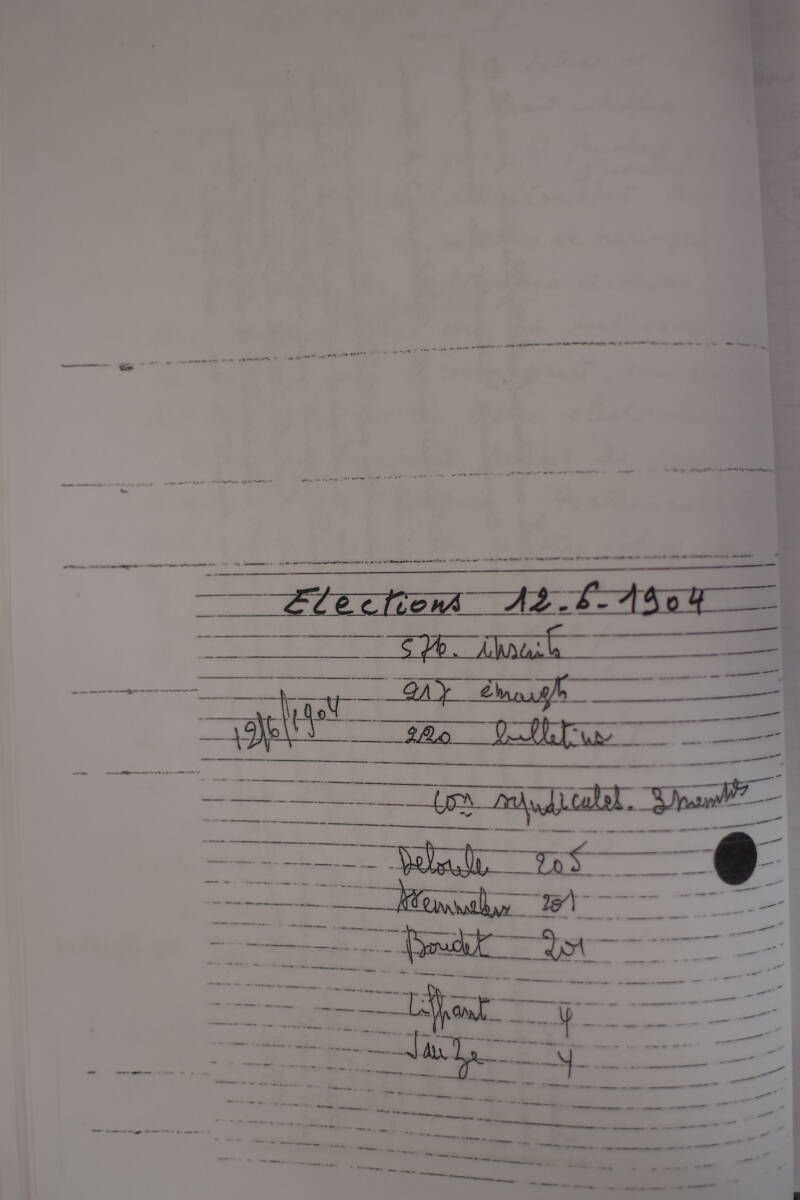 Elections 12-6-1904
576. inscrits
217 émargts
12/6/1904
220 bulletins
Con syndicales. 3 membres
Deloule 205
201
Boudet 201
Liffrant 4
Sauze 4